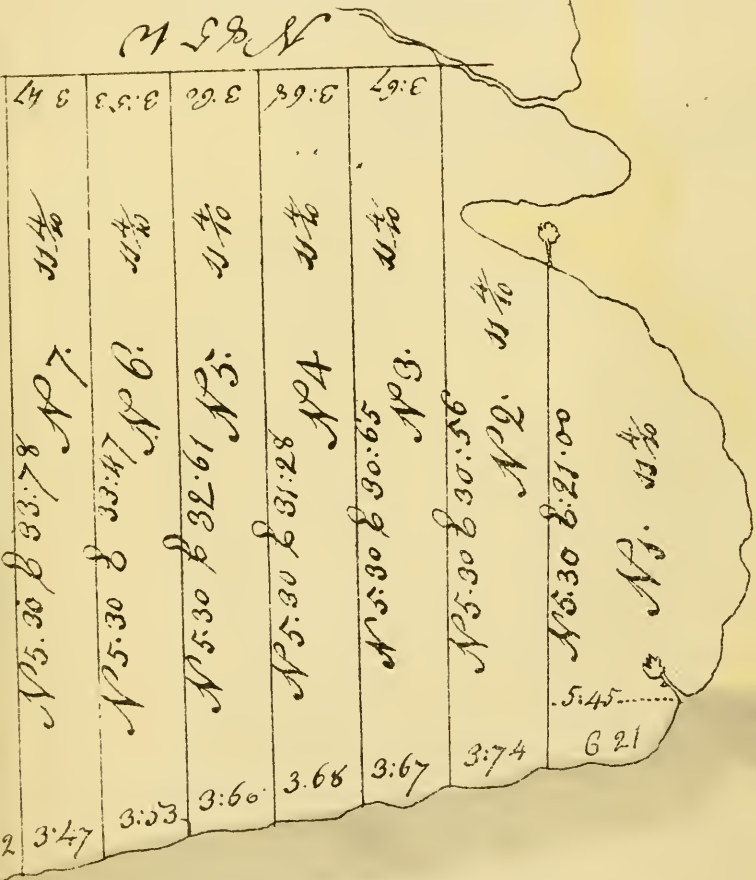 N 85 W
3 47
3:53
3:60
3:68
3:67
11 4/10
11 4/10
11 4/10
11 4/10
11 4/10
11 4/10
11 4/10
N 7.
N 6.
N 5.
N 4
N 3.
N 2.
N 1.
N 5.30 E 33:78
N 5.30 E 33:47
N 5.30 E 32:61
N 5.30 E 31:28
N 5.30 E 30:65
N 5.30 E 30:56
N 5.30 E:21.00
2
3:47
3:53
3:60
3.68
3:67
3:74
5:45
6 21